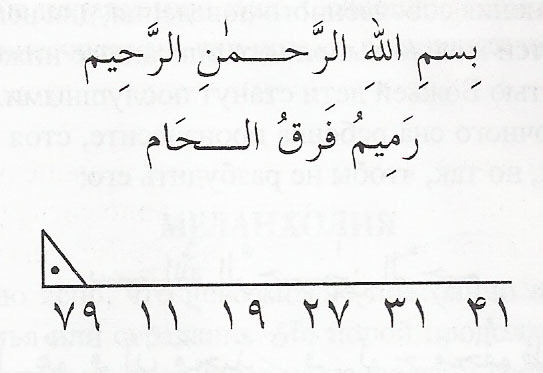 بِسمِ اللهِ الرَّحـــمـٰنِ الرَّحِيمِ
رَمِيمُ فَرقُ الـــحَام
٧٩ ١١ ١٩ ٢٧ ٣١ ۴١